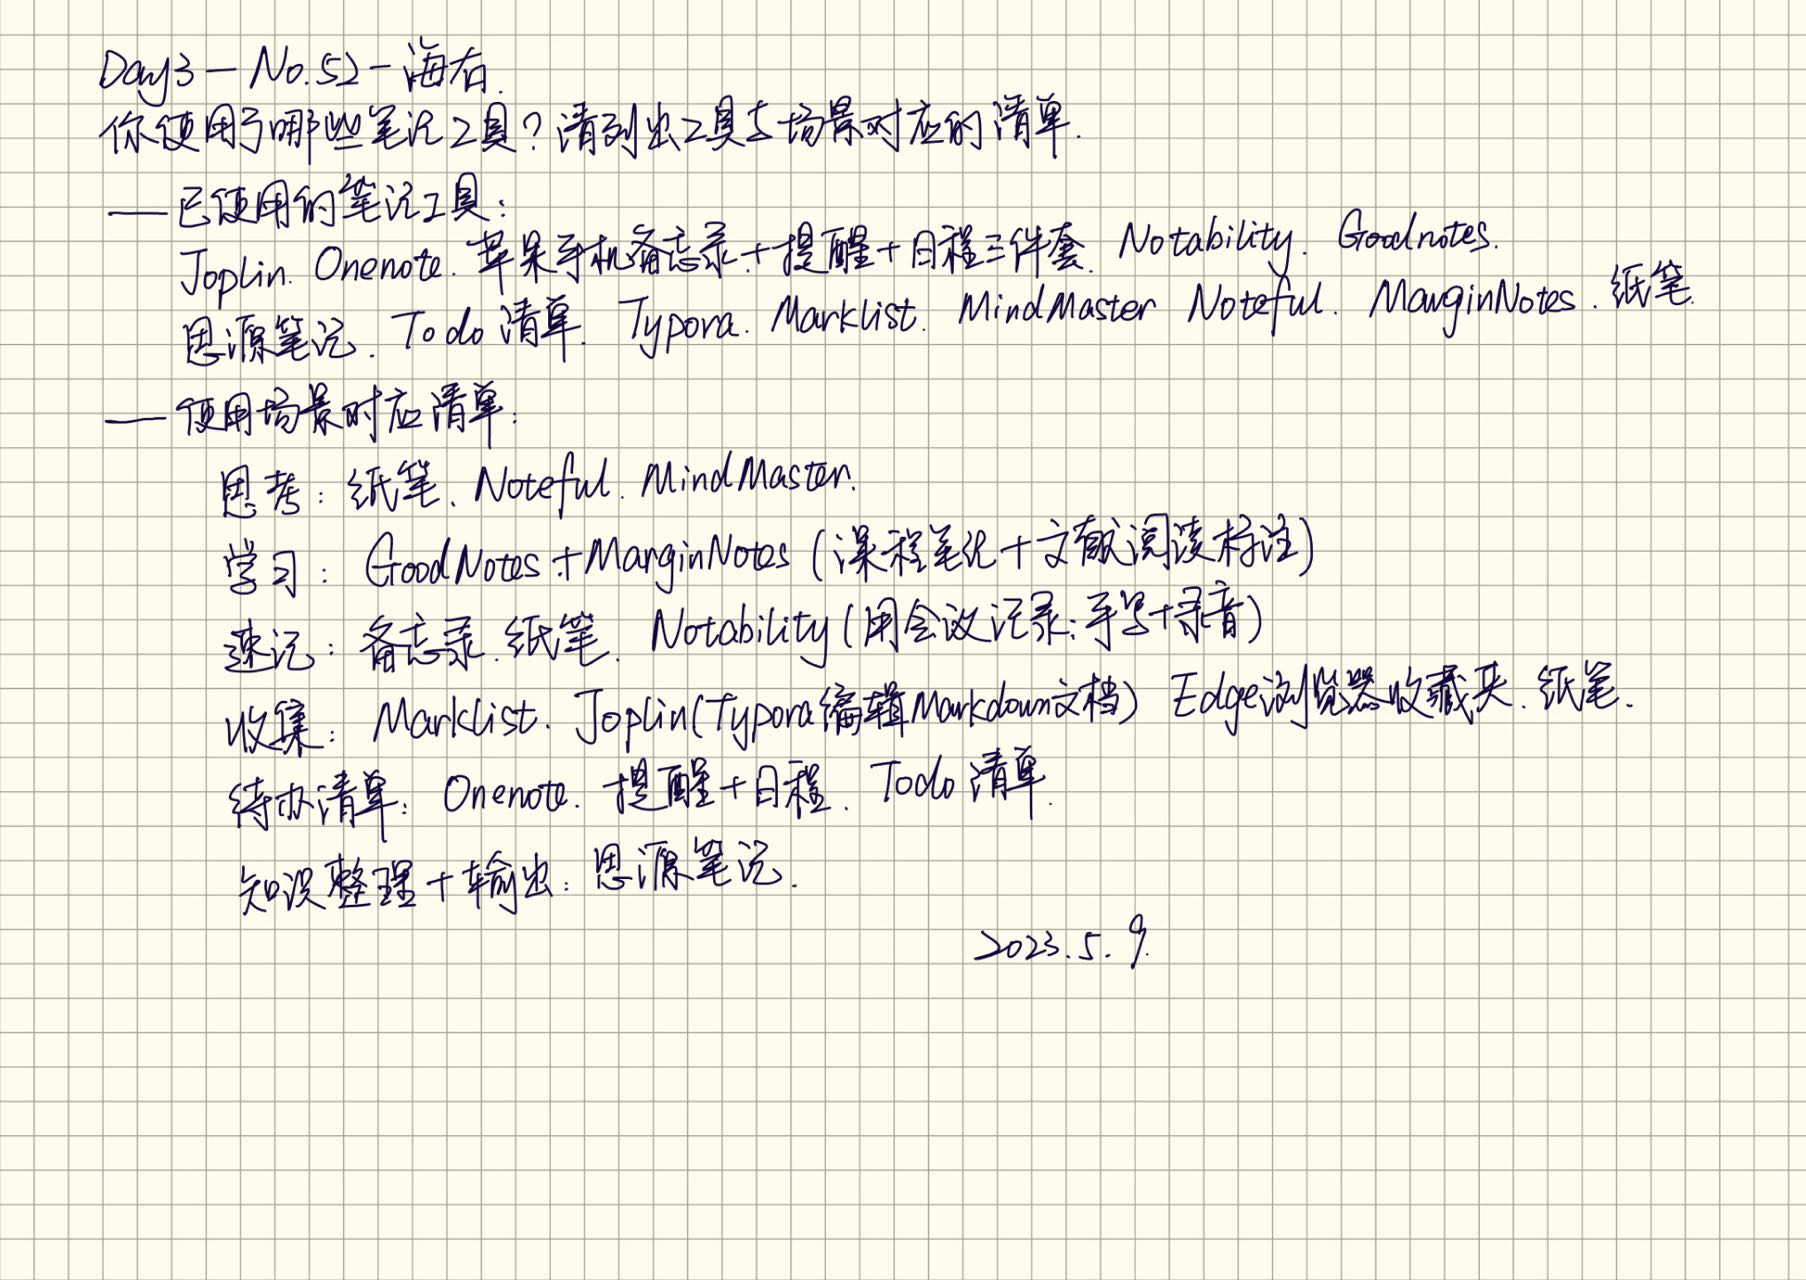 Day3-No.52-海右.
你使用了哪些笔记工具？请列出工具与场景对应的清单.
——已使用的笔记工具：
Joplin. Onenote. 苹果手机备忘录+提醒+日程三件套. Notability. Goodnotes.
思源笔记. Todo清单. Typora. Marklist. MindMaster Noteful. MarginNotes. 纸笔.
——使用场景对应清单：
思考：纸笔. Noteful. MindMaster.
学习：GoodNotes+MarginNotes（课程笔记+文献阅读标注）
速记：备忘录.纸笔. Notability（用会议记录：手写+录音）
收集：Marklist. Joplin（Typora编辑Markdown文档）Edge浏览器收藏夹.纸笔.
待办清单：Onenote. 提醒+日程. Todo清单.
知识整理+输出：思源笔记.
2023.5.9.